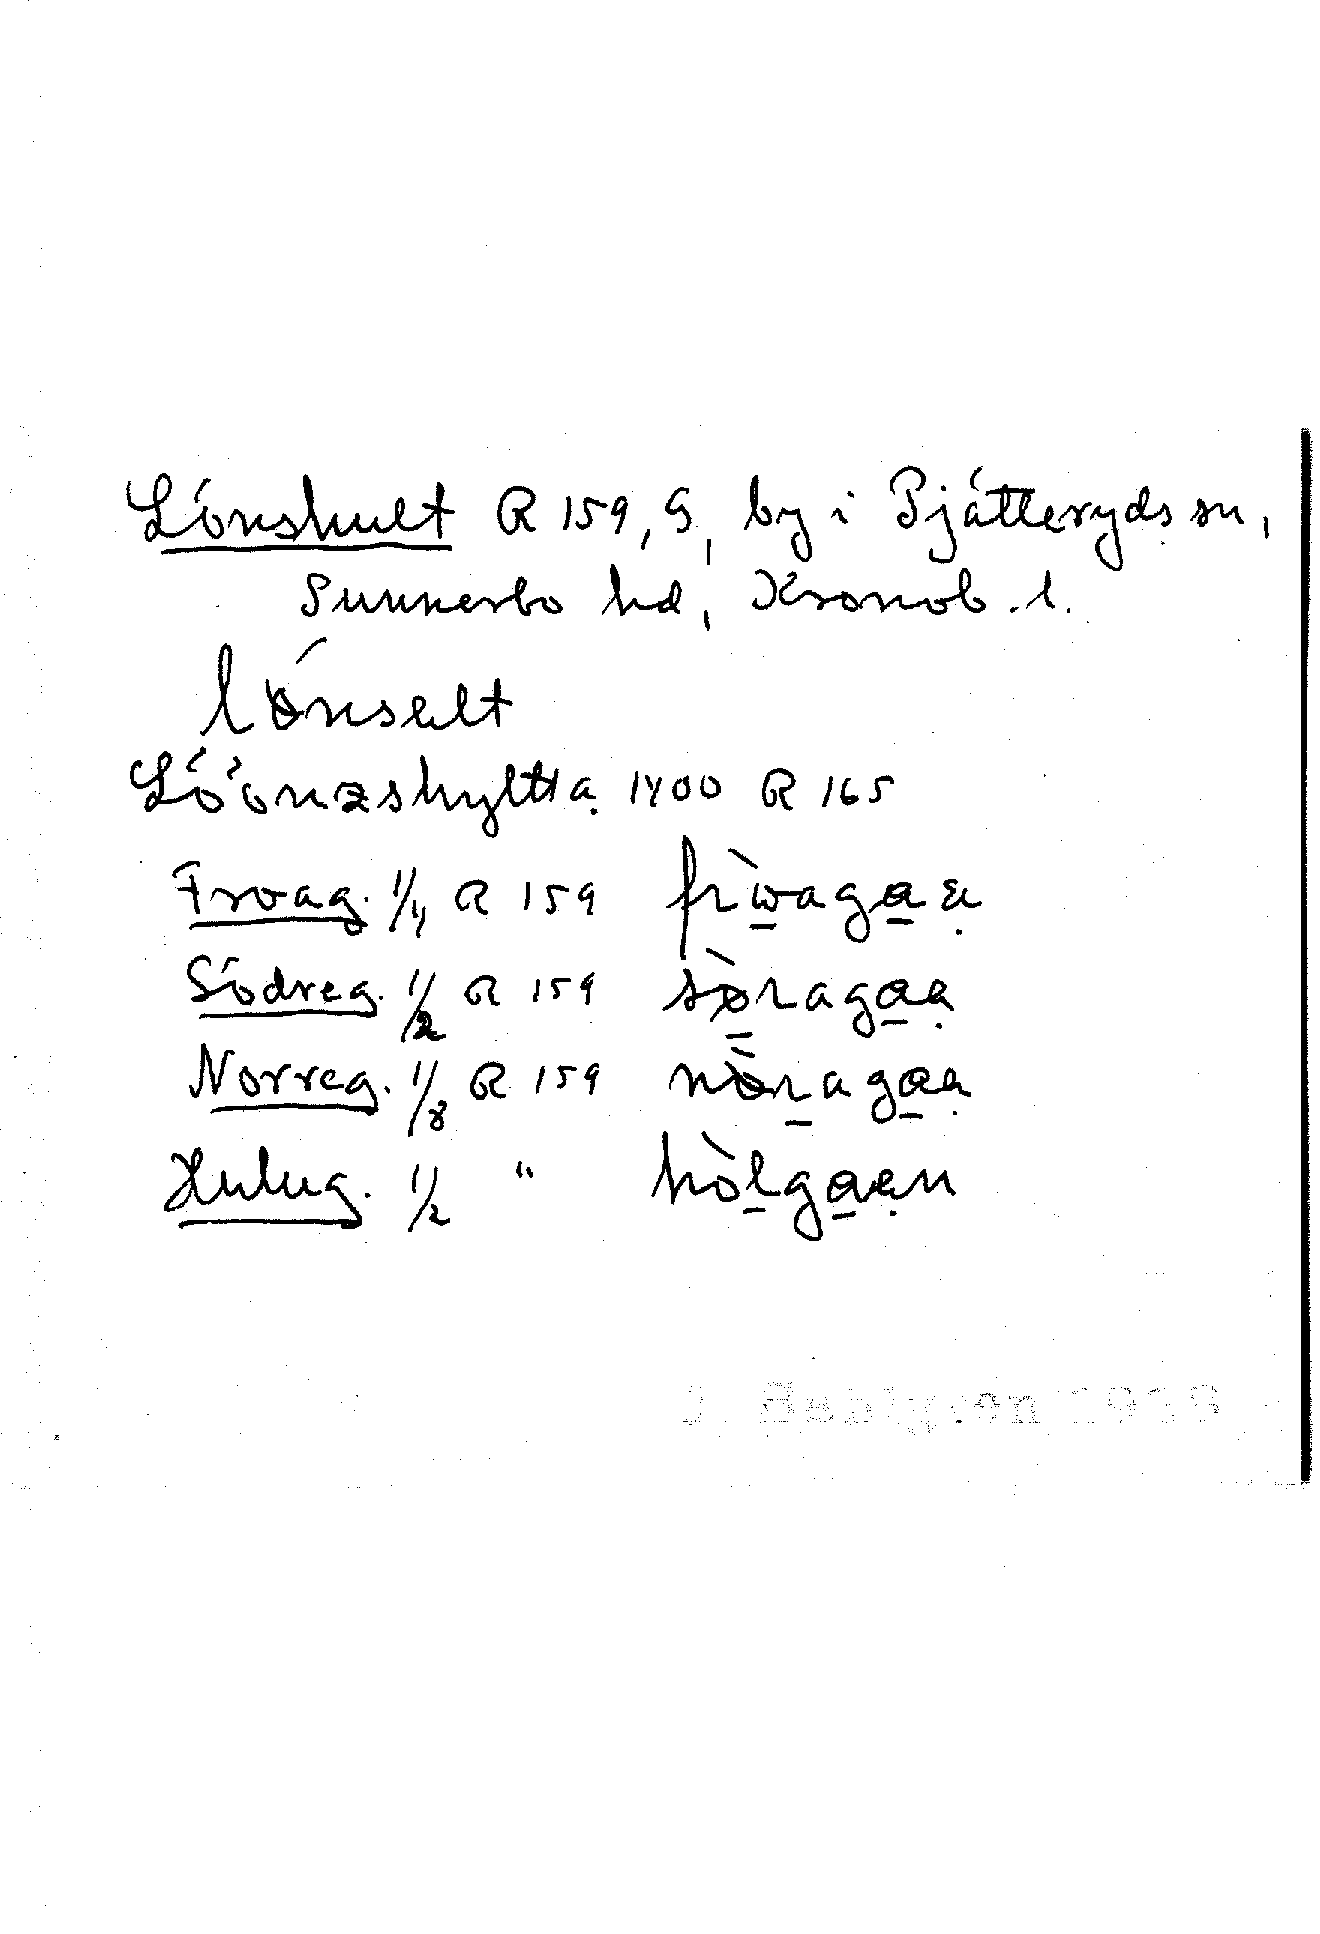 Lönshult R 159, G, by i Pjätteryds sn,
Sunnerbo hd, Kronob. l.
lønsalt
Löönzshyltta 1400 R 165
Froag. 1/4 R 159 frωagaa
Södreg. 1/2 R 159 søragaa
Norreg. 1/8 R 159 nøragaa
Hulug. 1/2 " hòlgaan
J. Sahlgren 1918